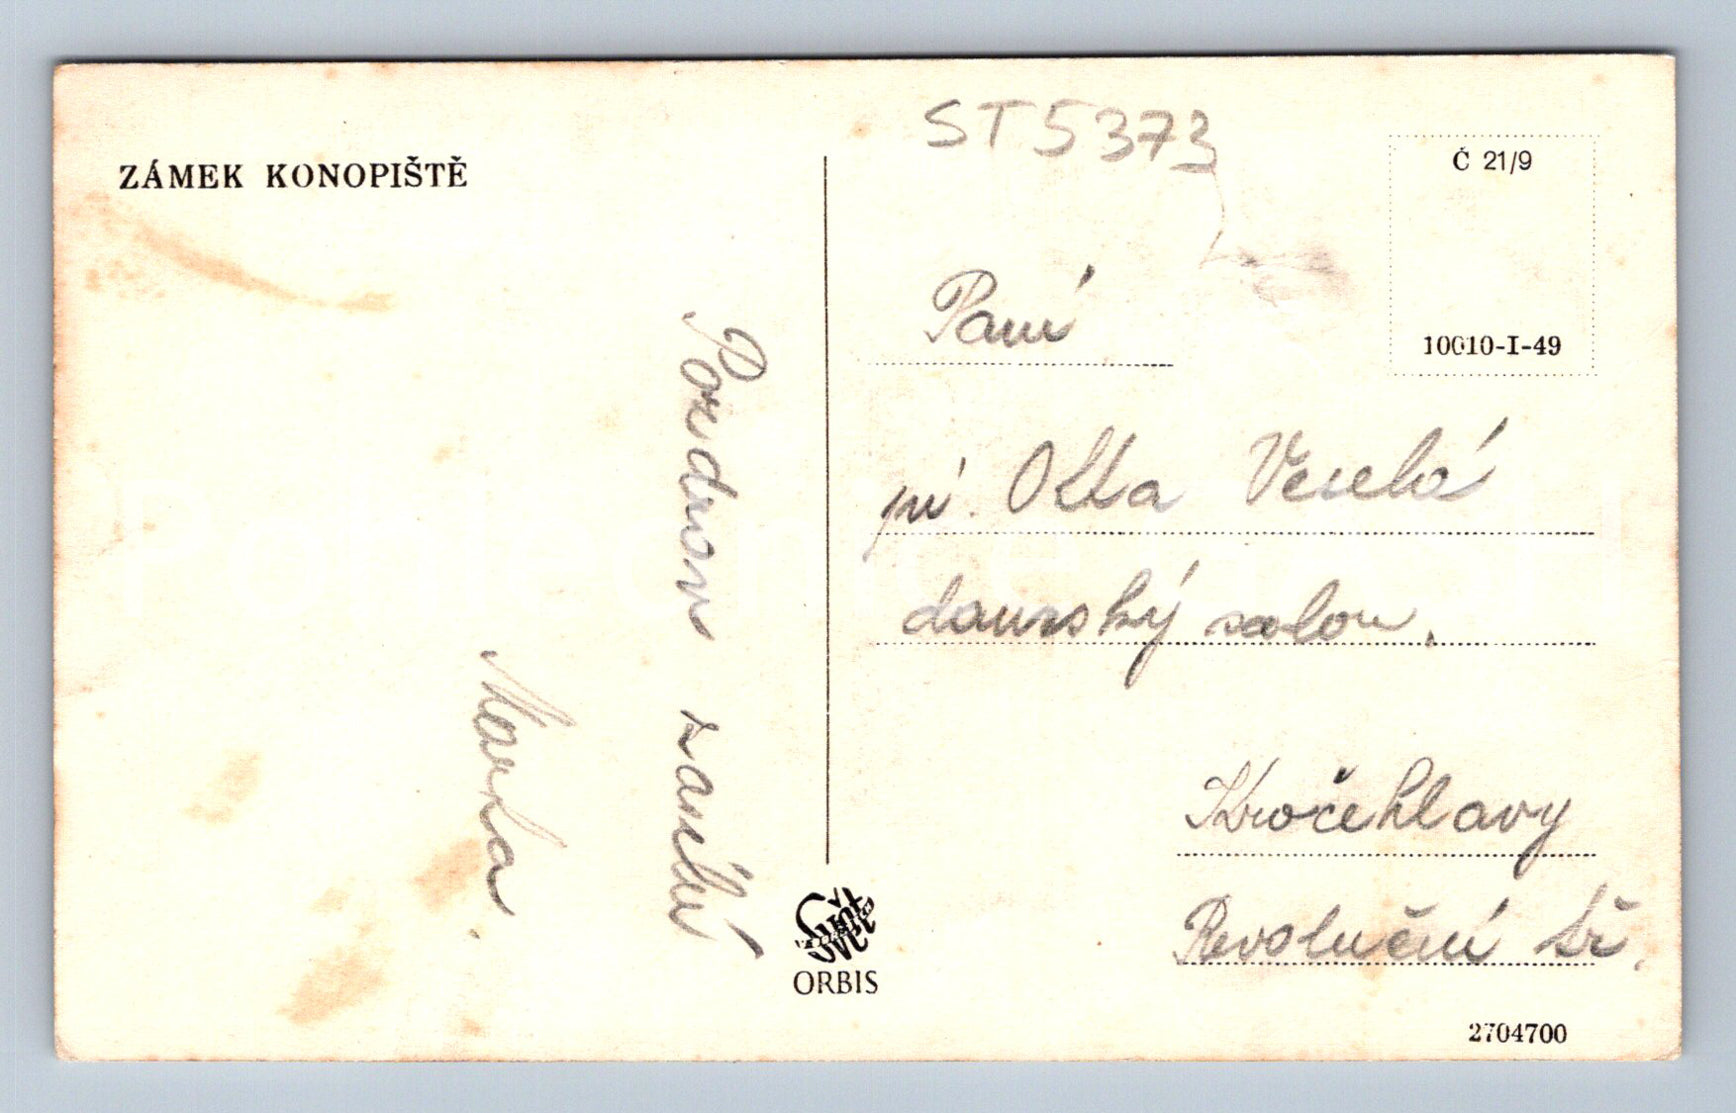 ZÁMEK KONOPIŠTĚ
Pozdrav zasílá
Marla
ORBIS
ST5373
Č 21/9
10010-I-49
Paní
pí. Olla Veselá
dámský salon.
Kročehlavy
Revoluční tř.
2704700